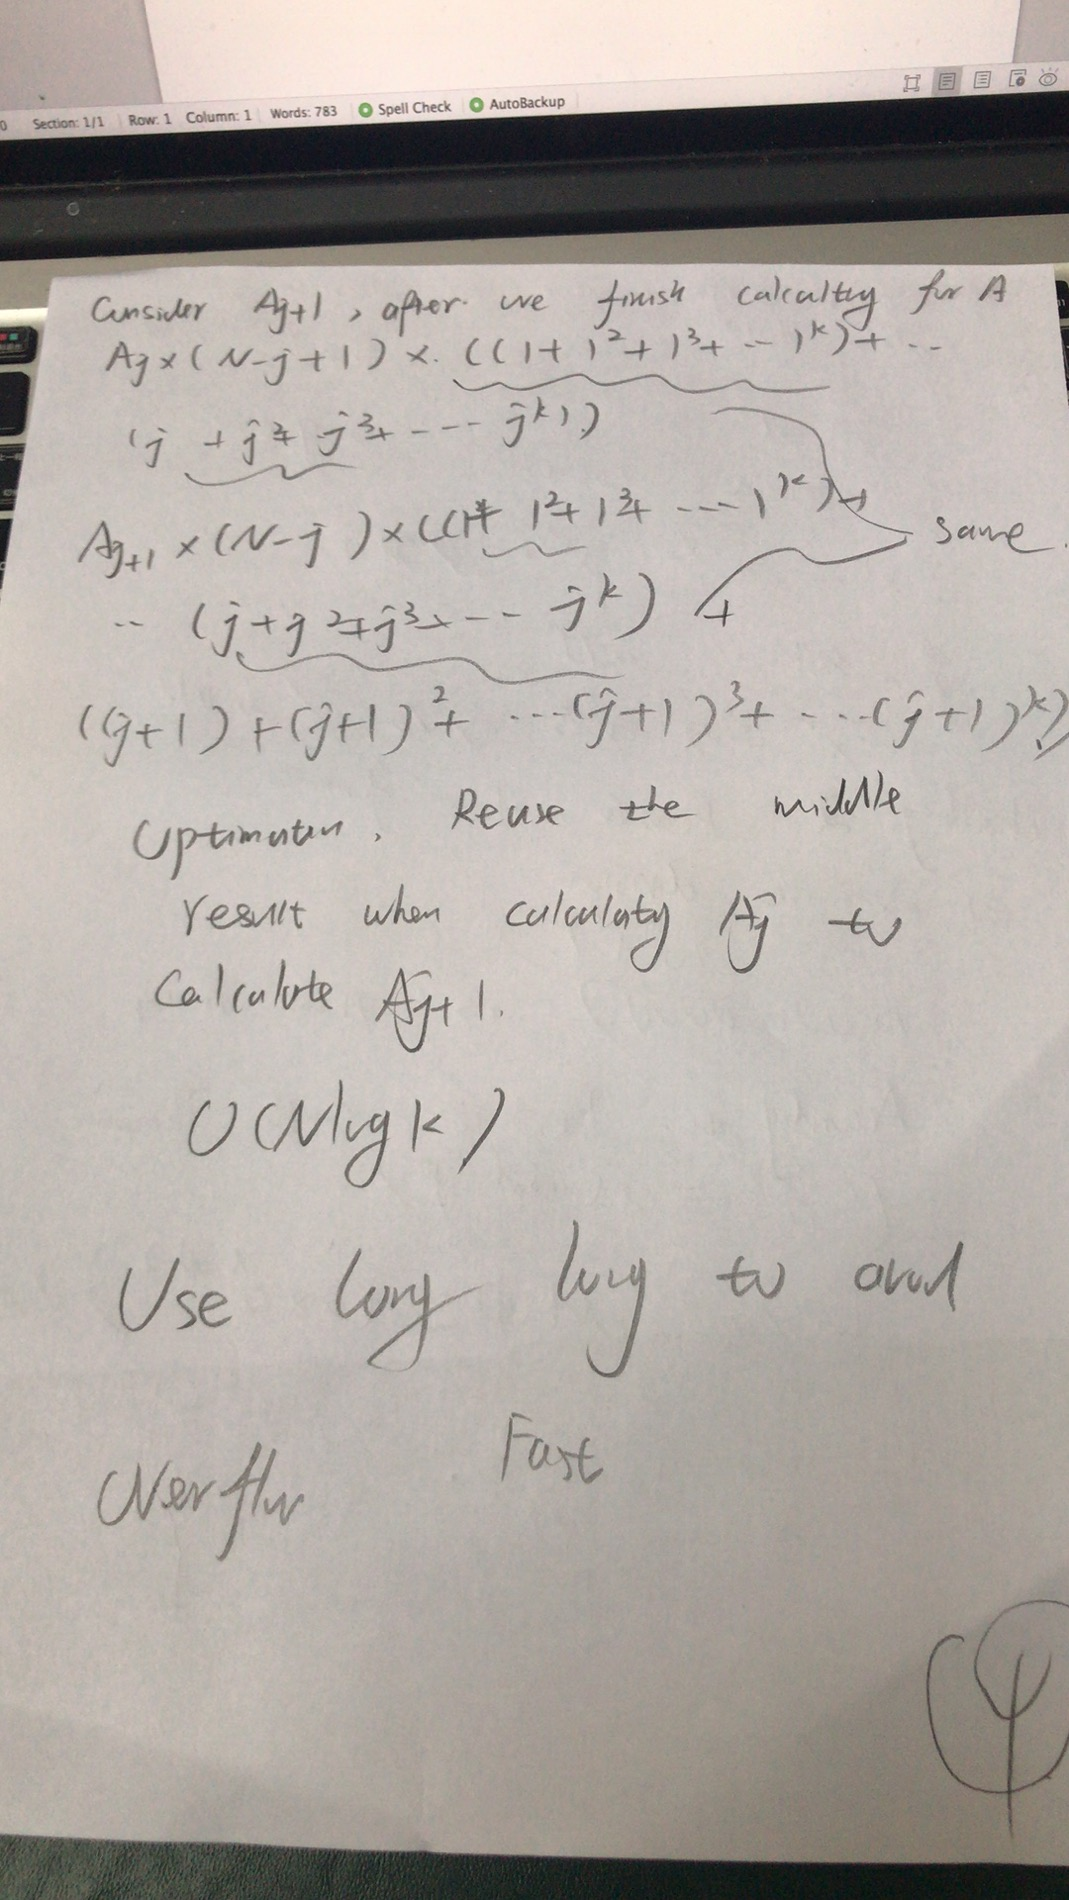 Section: 1/1 Row: 1 Column: 1 Words: 783 Spell Check AutoBackup
Consider Aj+1, after we finish calcultg for A
Aj×(N-j+1)×((1+1²+1³+--1ᵏ)+..
(j+j²+j³+----jᵏ))
Aj+1×(N-j)×((1+1²+1³+---1ᵏ)+
same.
..(j+j²+j³+---jᵏ)+
((j+1)+(j+1)²+...(j+1)³+...(j+1)ᵏ)
Reuse the middle
result when calculatg Aj to
Calculate Aj+1.
O(Nlogk)
Use long long to avoid
Overflow Fast
4